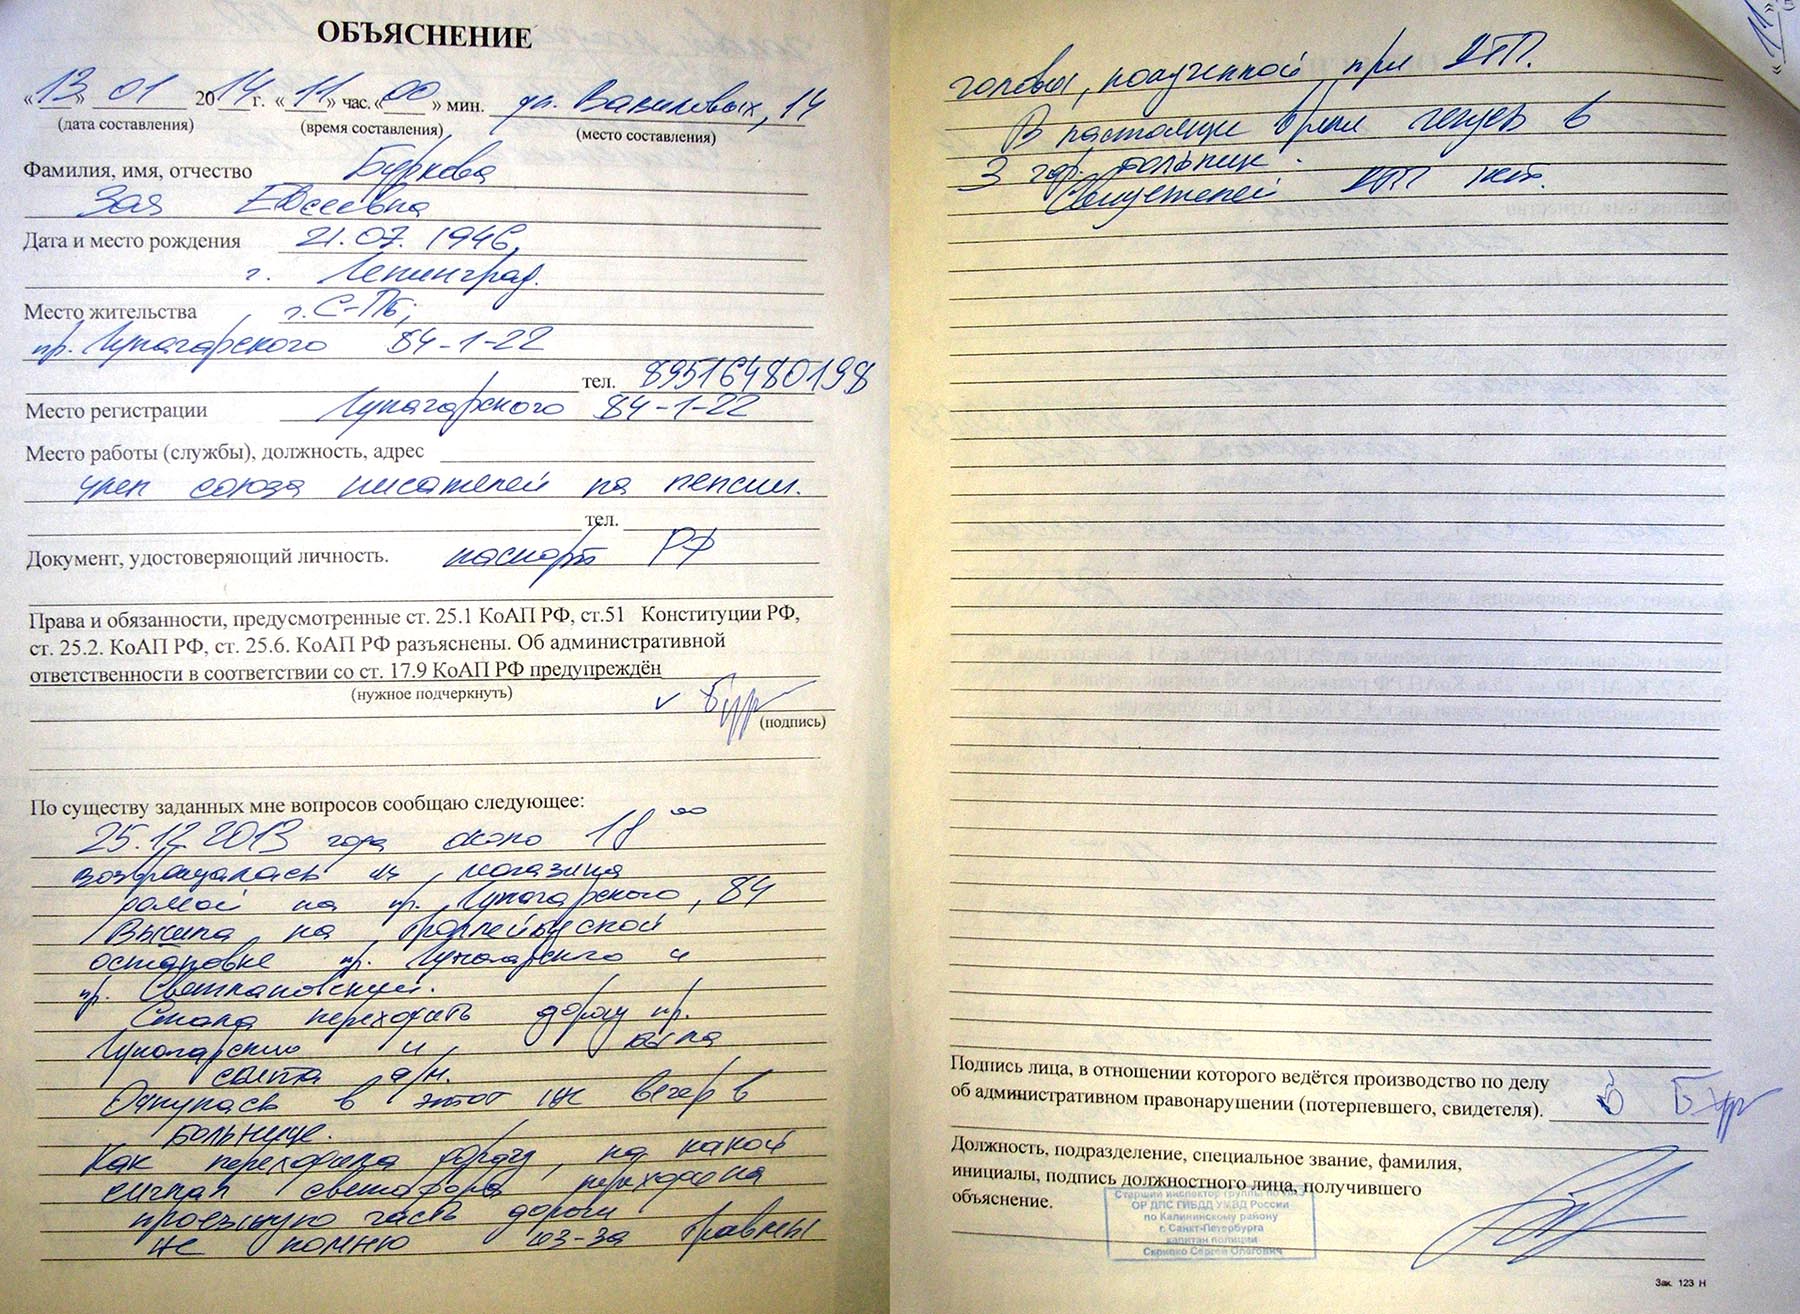 ОБЪЯСНЕНИЕ
«13» 01 2014 г. «11» час. «00» мин. ул. Вавиловых, 14
(дата составления) (время составления) (место составления)
Фамилия, имя, отчество Буркова
Зоя Евсеевна
Дата и место рождения 21.07.1946,
г. Ленинград.
Место жительства г. С-Пб,
пр. Луначарского 84-1-22
тел. 89516480198
Место регистрации Луначарского 84-1-22
Место работы (службы), должность, адрес
член союза писателей на пенсии.
тел.
Документ, удостоверяющий личность. паспорт РФ
Права и обязанности, предусмотренные ст. 25.1 КоАП РФ, ст.51 Конституции РФ,
ст. 25.2. КоАП РФ, ст. 25.6. КоАП РФ разъяснены. Об административной
ответственности в соответствии со ст. 17.9 КоАП РФ предупреждён
(нужное подчеркнуть)
(подпись)
По существу заданных мне вопросов сообщаю следующее:
25.12.2013 года около 18 00
возвращалась из магазина
домой на пр. Луначарского, 84
Вышла на троллейбусной
остановке пр. Луначарского и
пр. Светлановский.
Стала переходить дорогу пр.
Луначарского и была
сбита а/м.
Очнулась в этот же вечер в
больнице.
Как переходила дорогу, на какой
сигнал светофора переходила
проезжую часть дороги
не помню из-за травмы
головы, полученной при ДТП.
В настоящее время лечусь в
3 гор. больнице.
Свидетелей ДТП нет.
Подпись лица, в отношении которого ведётся производство по делу
об административном правонарушении (потерпевшего, свидетеля).
Должность, подразделение, специальное звание, фамилия,
инициалы, подпись должностного лица, получившего
объяснение.
Старший инспектор группы по ИАЗ
ОР ДПС ГИБДД УМВД России
по Калининскому району
г. Санкт-Петербурга
капитан полиции
Скрипко Сергей Олегович
Зак. 123 Н
«11»